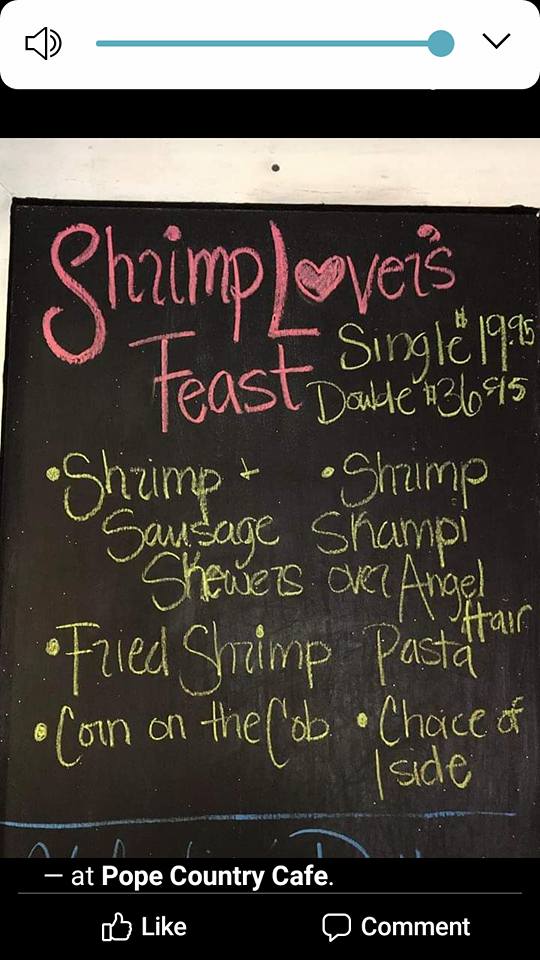 Shrimp Lover's
Feast
Single $19.95
Double $36.95
• Shrimp +
Sausage
Skewers
• Shrimp
Shampi
over Angel
Hair
Pasta
• Fried Shrimp
• Corn on the Cob
• Choice of
1 side
— at Pope Country Cafe.
Like
Comment